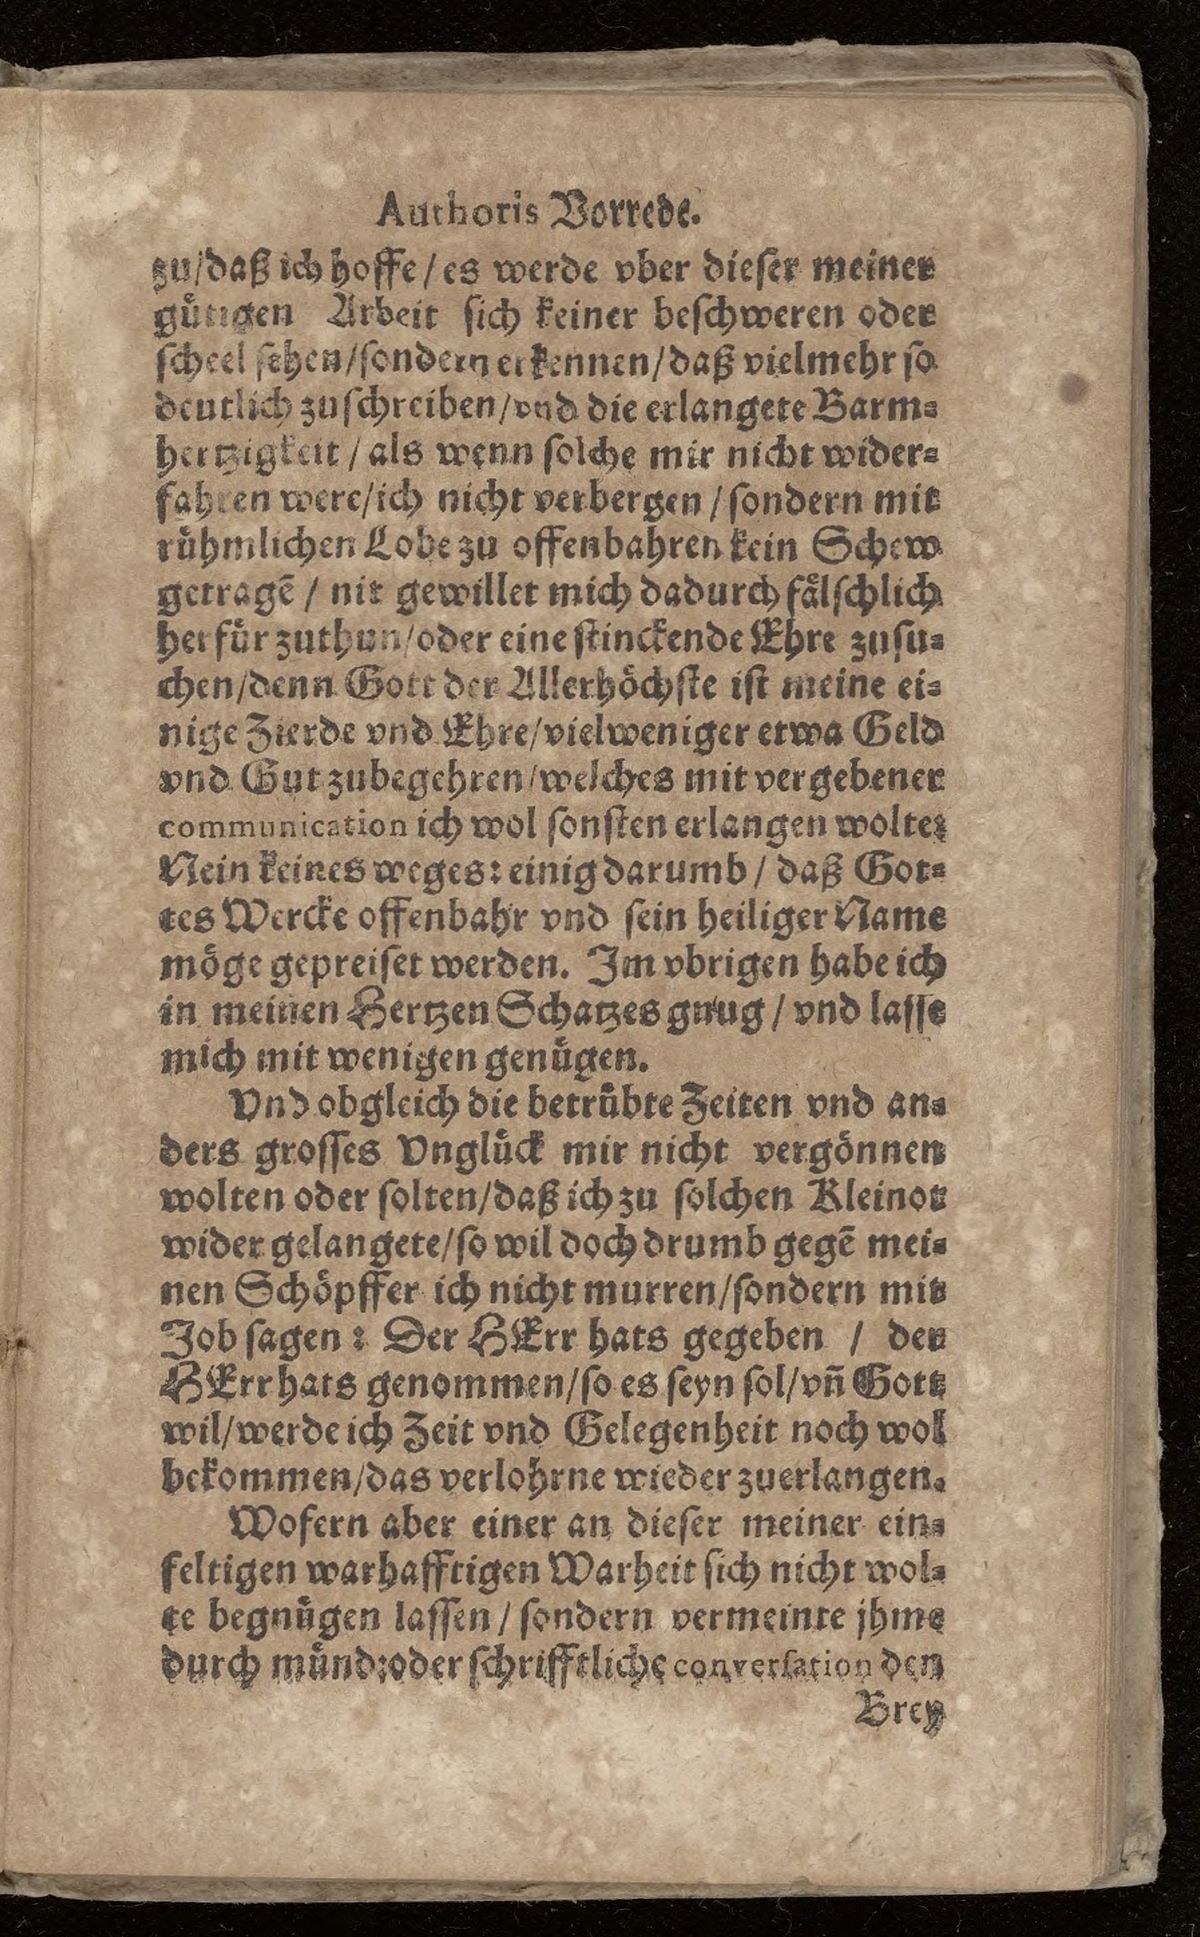 Authoris Vorrede.
zu/daß ich hoffe/es werde vber dieser meiner
gütigen Arbeit sich keiner beschweren oder
scheel sehen/sondern erkennen/daß vielmehr so
deutlich zuschreiben/vnd die erlangete Barm-
hertzigkeit/als wenn solche mir nicht wider-
fahren were/ich nicht verbergen/sondern mit
rühmlichen Lobe zu offenbahren kein Schew
getragẽ/nit gewillet mich dadurch fälschlich
herfür zuthun/oder eine stinckende Ehre zusu-
chen/denn Gott der Allerhöchste ist meine ei-
nige Zierde vnd Ehre/vielweniger etwa Geld
vnd Gut zubegehren/welches mit vergebener
communication ich wol sonsten erlangen wolte:
Nein keines weges: einig darumb/daß Got-
tes Wercke offenbahr vnd sein heiliger Name
möge gepreiset werden. Im vbrigen habe ich
in meinen Hertzen Schatzes gnug/vnd lasse
mich mit wenigen genügen.
Vnd obgleich die betrübte Zeiten vnd an-
ders grosses Vnglück mir nicht vergönnen
wolten oder solten/daß ich zu solchen Kleinot
wider gelangete/so wil doch drumb gegẽ mei-
nen Schöpffer ich nicht murren/sondern mit
Job sagen: Der HErr hats gegeben / der
HErr hats genommen/so es seyn sol/vñ Gott
wil/werde ich Zeit vnd Gelegenheit noch wol
bekommen/das verlohrne wieder zuerlangen.
Wofern aber einer an dieser meiner ein-
feltigen warhafftigen Warheit sich nicht wol-
te begnügen lassen/sondern vermeinte jhme
durch münd:oder schrifftliche conversation den
Brey